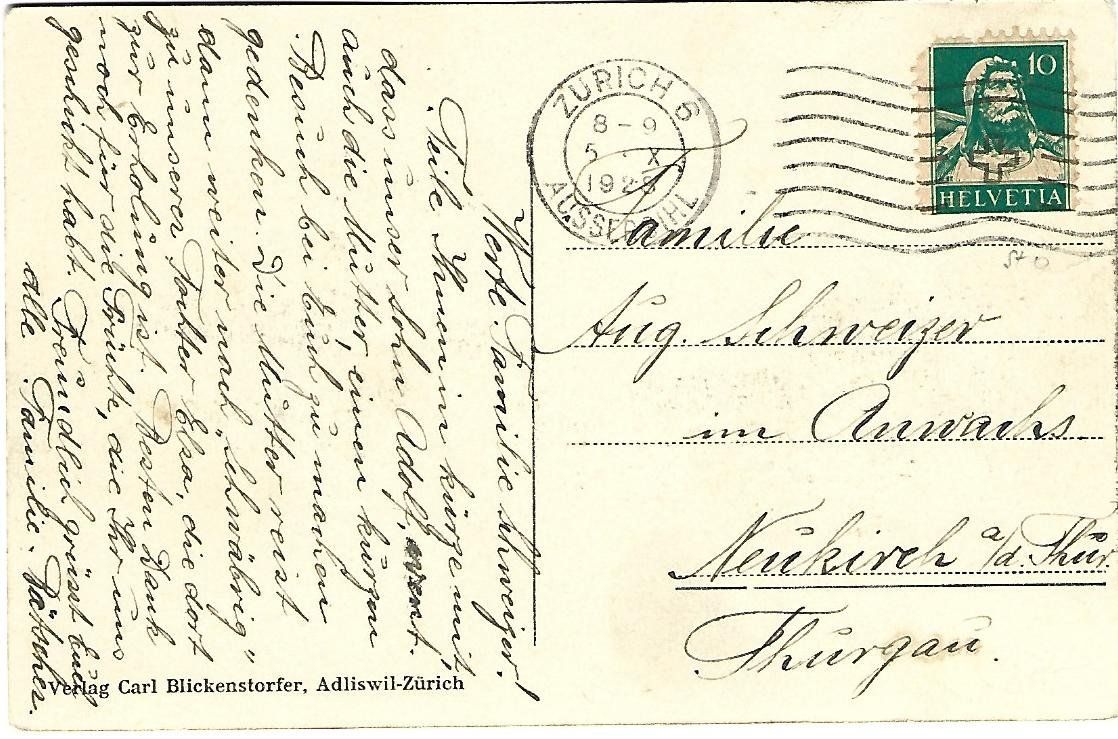 Werte Familie Schweizer!
Teile Ihnen in kürze mit
dass unser Sohn Adolf, event.
auch die Mutter, einen kurzen
Besuch bei Euch zu machen
gedenken. Die Mutter reist
dann weiter nach „Schwäbrig"
zu unserer Tochter Elsa, die dort
zur Erholung ist. Besten Dank
noch für die Früchte, die Ihr uns
geschickt habt. Freundlich grüsst Euch
alle Familie
Verlag Carl Blickenstorfer, Adliswil-Zürich
ZÜRICH 6
8-9
5. X.
AUSSERSIHL
10
HELVETIA
Familie
Aug. Schweizer
im Anwachs.
Neukirch a/d. Thur
Thurgau.